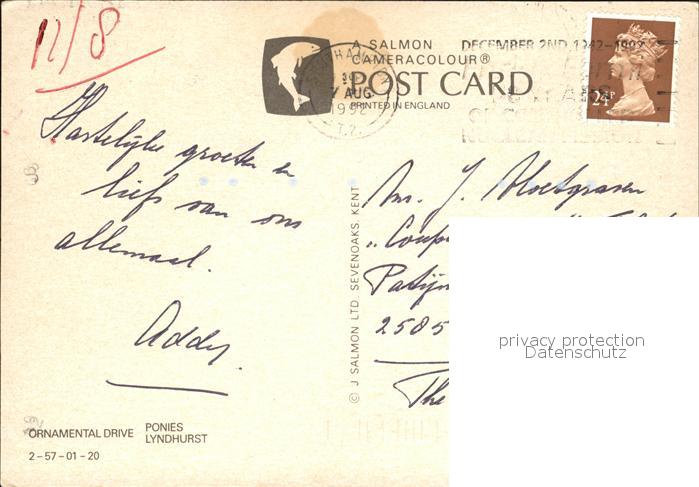 11/8
A SALMON
CAMERACOLOUR®
POST CARD
PRINTED IN ENGLAND
DECEMBER 2ND 1942-1992
AUG
1992
24P
Hartelijke groeten en
liefs van ons
allemaal.
Addy.
© J SALMON LTD. SEVENOAKS. KENT
Mr. J.
"Coup
Patijn
2585
The
privacy protection
Datenschutz
ORNAMENTAL DRIVE PONIES
LYNDHURST
2-57-01-20